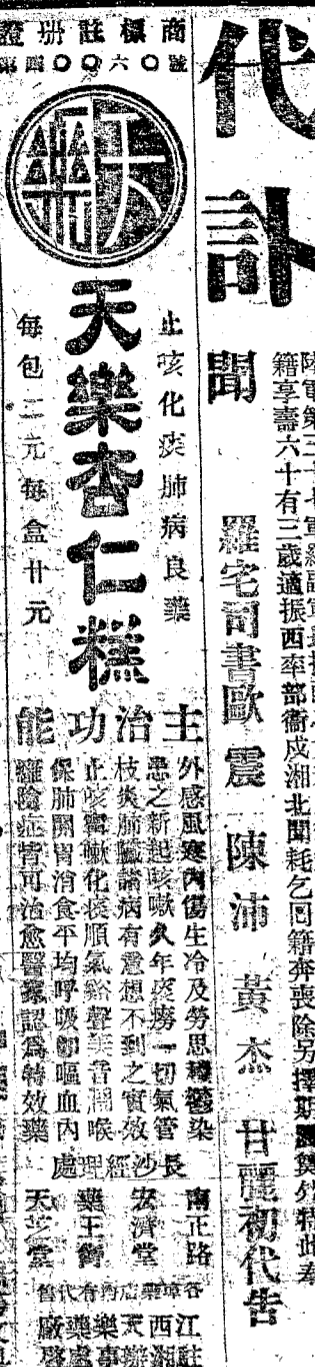 陸電第三十七軍羅副軍長
籍享壽六十有三歲適振西率部衞戍湘北聞耗乞回籍奔喪除另擇期
代訃
聞
羅宅司書歐震 陳沛 黃杰 甘麗初代告
商標註册證
第四〇〇六〇號
天樂
止咳化痰肺病良藥
天樂杏仁糕
每包二元每盒廿元
主治功能
外感風寒內傷生冷及勞思穢鬱染
患之新起咳嗽久年痰癆一切氣管
枝炎肺臟諸病有意想不到之實效
止咳寧嗽化痰順氣谿聲美音潤喉
保肺開胃消食平均呼吸卽嘔血內
癰險症皆可治愈醫家認爲特效藥
長沙經理處
南正路
宏濟堂
藥王街
天芝堂
各埠藥店均有代售
江西
天樂藥廠